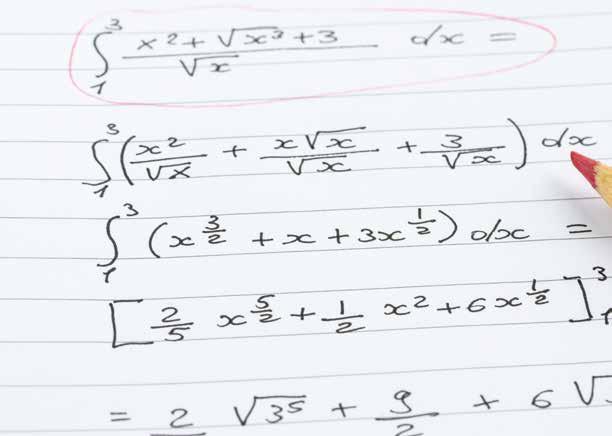 ∫₁³ (x² + √x³ + 3)/√x dx =
∫₁³ (x²/√x + x√x/√x + 3/√x) dx
∫₁³ (x^(3/2) + x + 3x^(1/2)) dx =
[2/5 x^(5/2) + 1/2 x² + 6x^(1/2)]₁³
= 2 √3⁵ + 9/2 + 6 √3